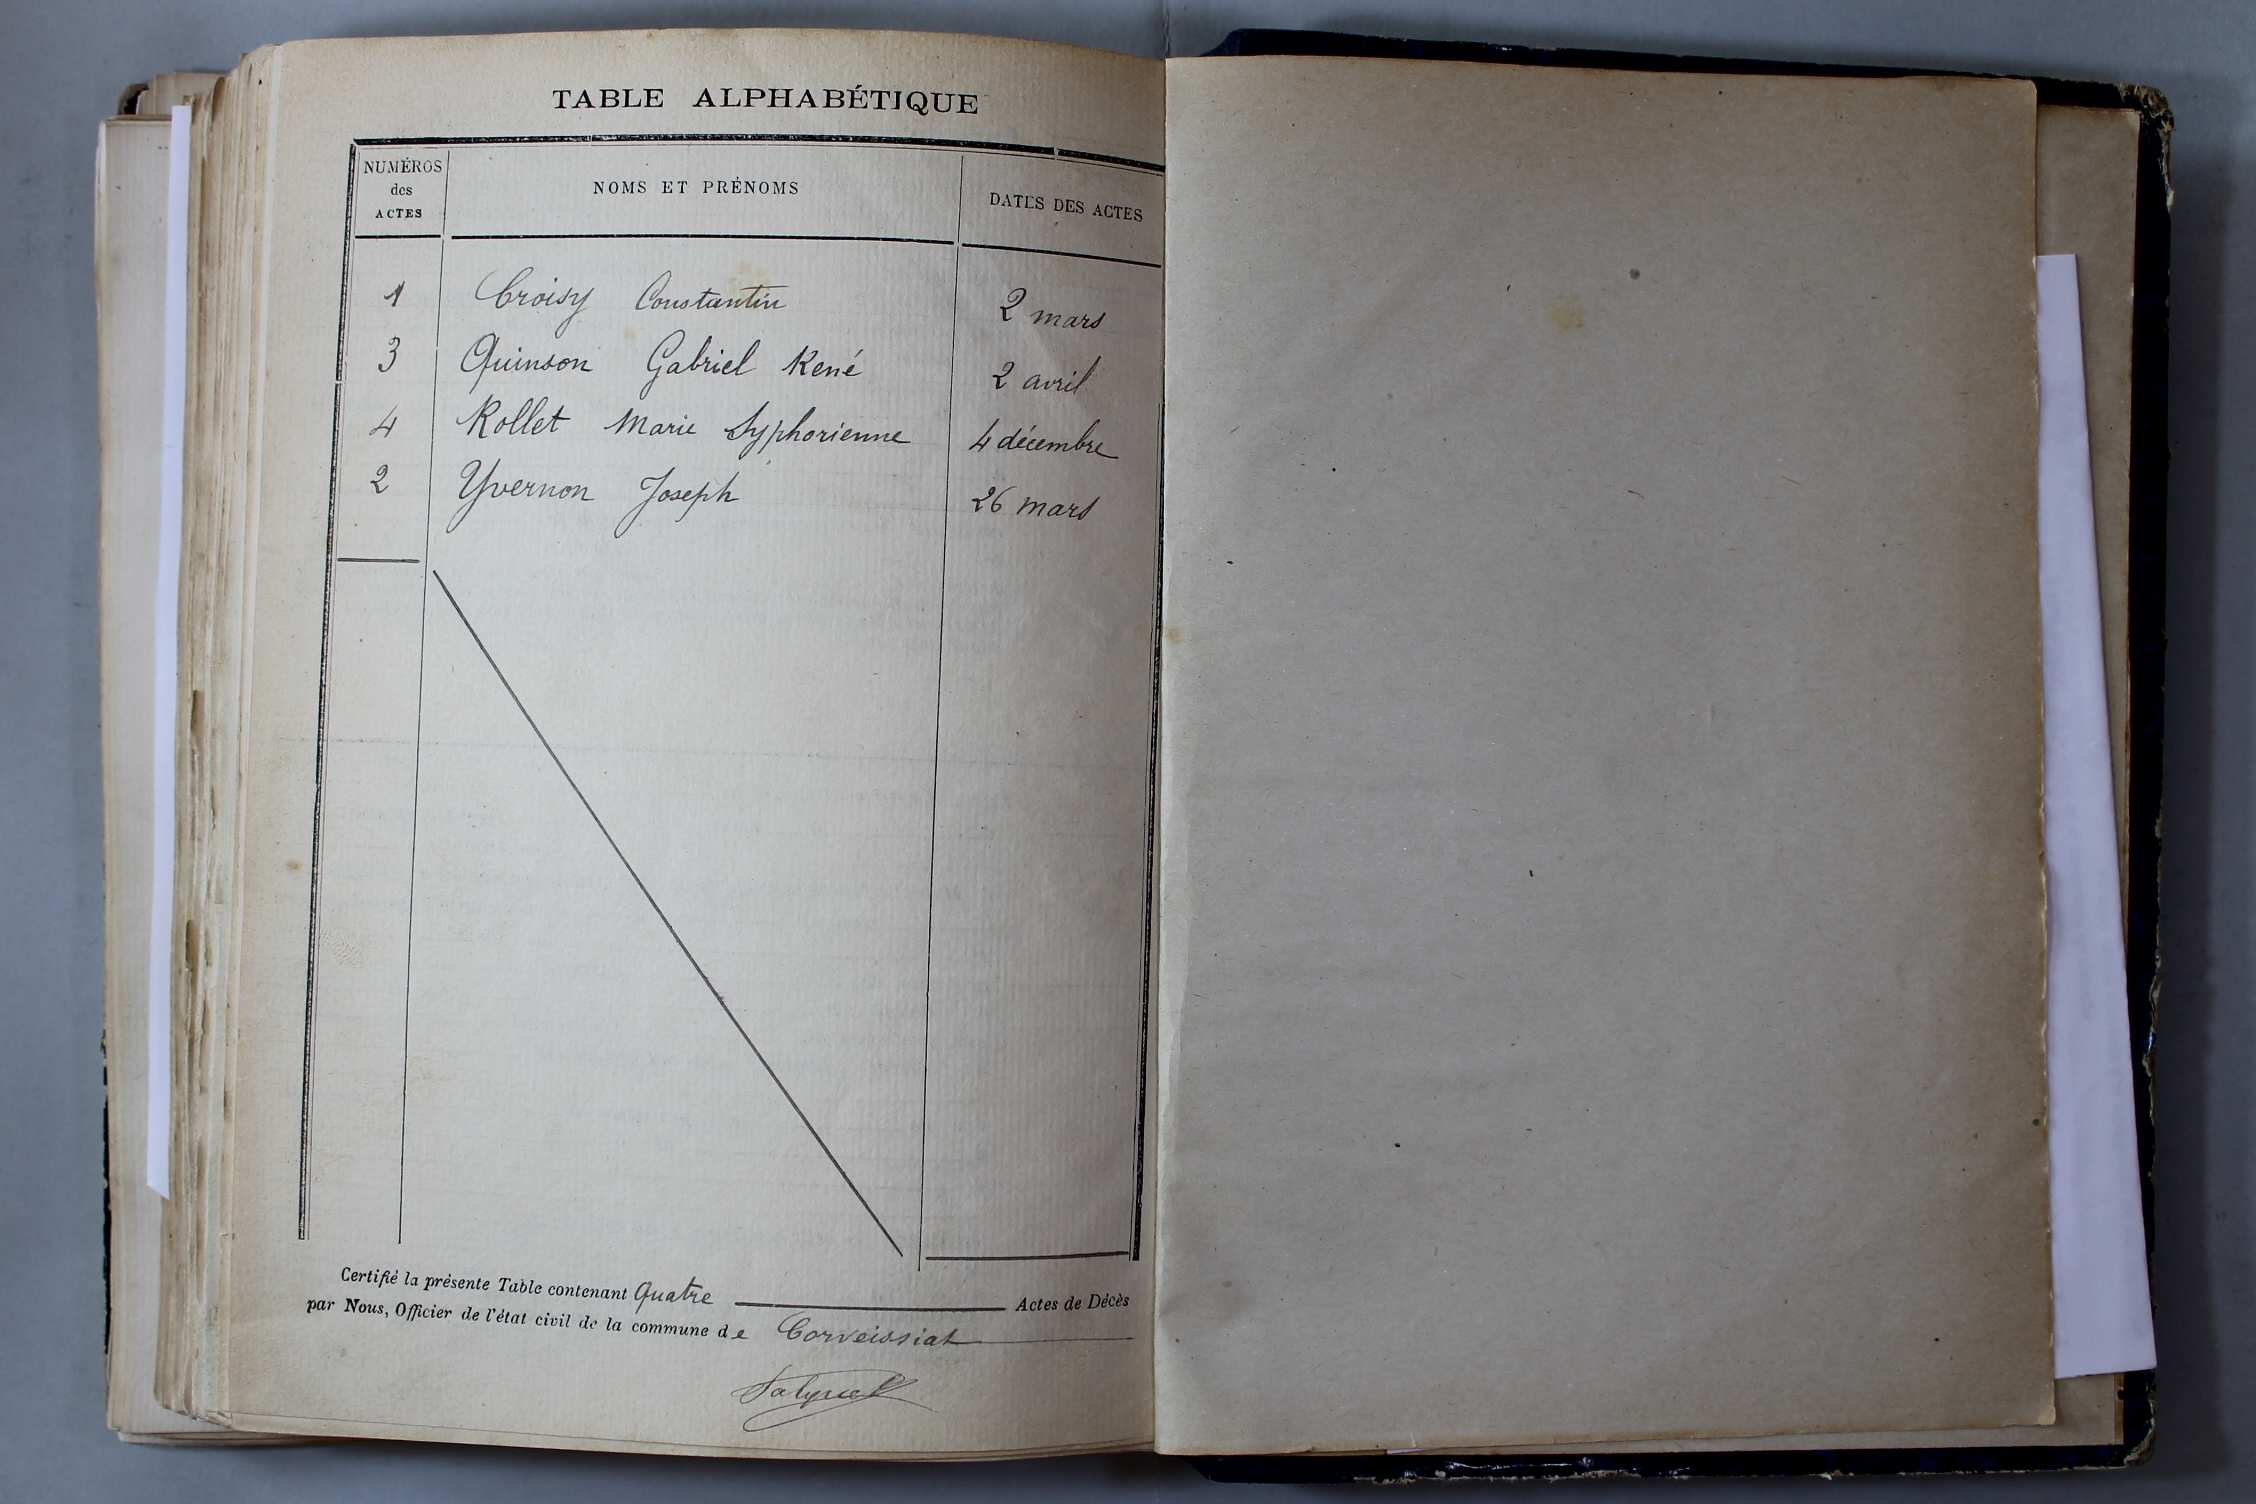 TABLE ALPHABÉTIQUE
NUMÉROS des ACTES NOMS ET PRÉNOMS DATES DES ACTES
1 Croisy Constantin 2 mars
3 Quinson Gabriel René 2 avril
4 Rollet Marie Syphorienne 4 décembre
2 Yvernon Joseph 26 mars
Certifié la présente Table contenant Quatre Actes de Décès
par Nous, Officier de l'état civil de la commune de Corveissiat